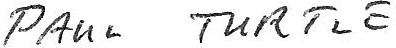 PAUL TURTLE